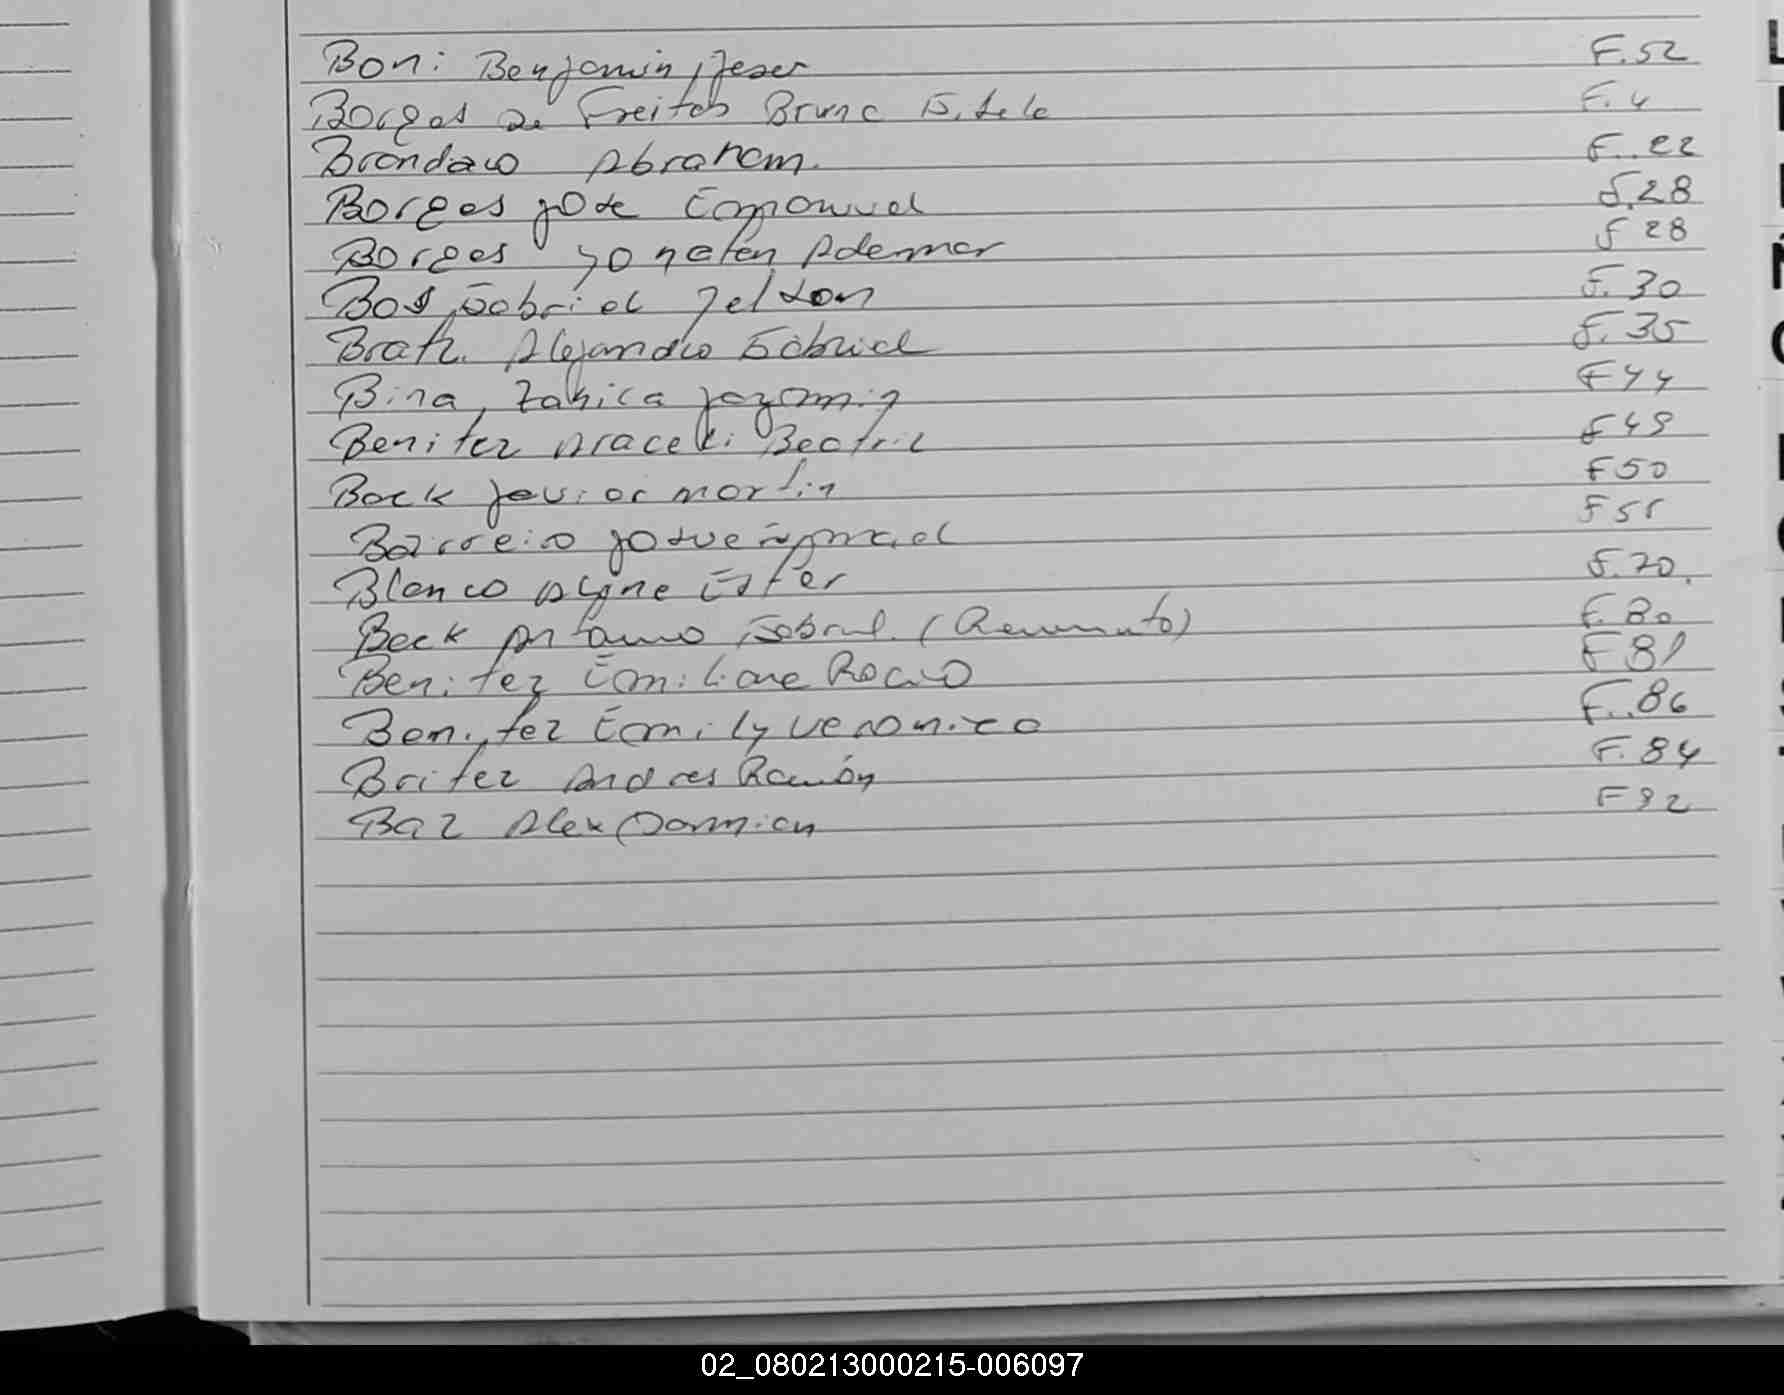 Boni Benjamin, Jeser F.52
Borges de Freitas Bruna Estela F.4
Brondavo Abraham. F..22
Borges José Emanuel F.28
Borges Jonatan Ademar F 28
Bos Gabriel Jelson F.30
Bratz. Alejandro Gabriel F.35
Bina, Zahira Jazmin F44
Benitez Araceli Beatriz F49
Bock Javier Martin F50
Barreiro Josue Ismael F55
Blanco Alyne Ester F.70.
Beck Antonio Gabriel. F.80
Benitez Emiliane Rocio F81
Benitez Emily Veronica F..86
Britez Andres Ramón F.84
Baz Alex Damian F92
02_080213000215-006097